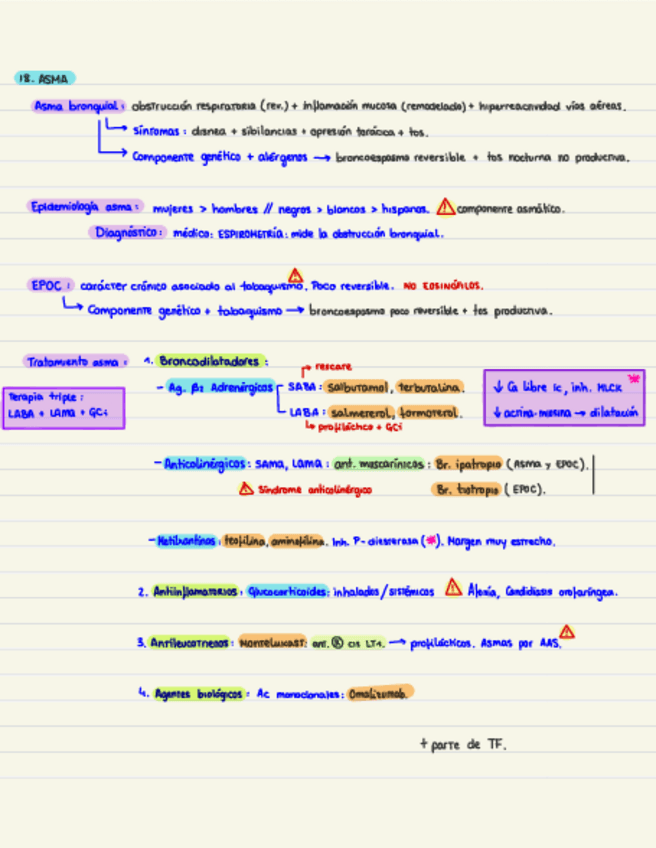 18. ASMA
Asma bronquial: obstrucción respiratoria (rev.) + inflamación mucosa (remodelado) + hiperreactividad vías aéreas.
Síntomas: disnea + sibilancias + opresión torácica + tos.
Componente genético + alérgenos → broncoespasmo reversible + tos nocturna no productiva.
Epidemiología asma: mujeres > hombres // negros > blancos > hispanos. ⚠ componente asmático.
Diagnóstico: médico: ESPIROMETRÍA: mide la obstrucción bronquial.
EPOC: carácter crónico asociado al tabaquismo. Poco reversible. NO EOSINÓFILOS.
Componente genético + tabaquismo → broncoespasmo poco reversible + tos productiva.
Tratamiento asma: 1. Broncodilatadores:
rescate
- Ag. β2 Adrenérgicos SABA: salbutamol, terbutalina.
LABA: salmeterol, formoterol.
profiláctico + GCi
↓ Ca libre ic, inh. MLCK *
↓ actina-miosina → dilatación
Terapia triple:
LABA + LAMA + GCi
- Anticolinérgicos: SAMA, LAMA: ant. muscarínicos: Br. ipatropio (ASMA y EPOC).
⚠ Síndrome anticolinérgico Br. tiotropio (EPOC).
- Metilxantinas: teofilina, aminofilina. Inh. P-diesterasa (*). Margen muy estrecho.
2. Antiinflamatorios: Glucocorticoides: inhalados/sistémicos ⚠ Afonía, Candidiasis orofaríngea.
3. Antileucotrienos: MONTELUKAST: ant. Ⓡ cis LT4. → profilácticos. Asmas por AAS. ⚠
4. Agentes biológicos: Ac monoclonales: Omalizumab.
+ parte de TF.